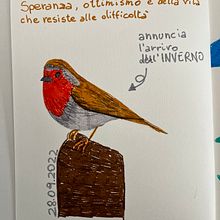 Speranza, ottimismo e della vita
che resiste alle difficoltà
annuncia
l'arrivo
dell'INVERNO
28.09.2022